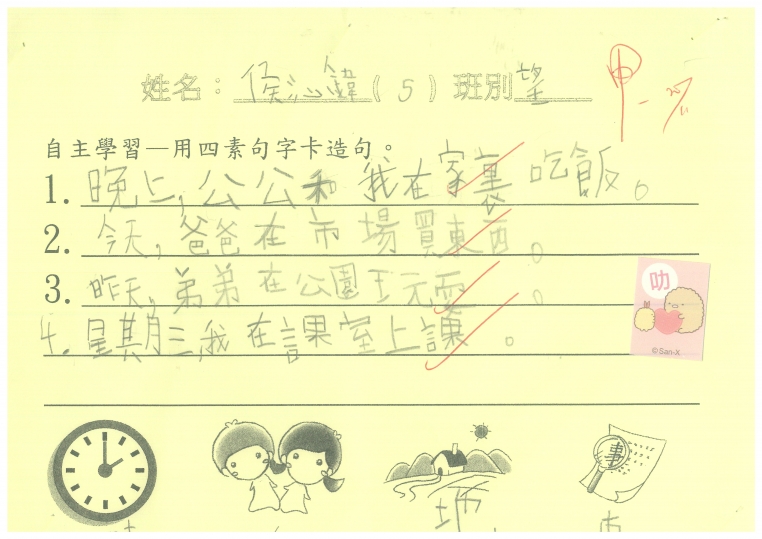 姓名：侯沁鍏（5）班別望
甲-
25/11
自主學習—用四素句字卡造句。
1. 晚上，公公和我在家裏吃飯。
2. 今天，爸爸在市場買東西。
3. 昨天，弟弟在公園玩耍。
4. 星期三，我在課室上課。
叻
©San-X
事